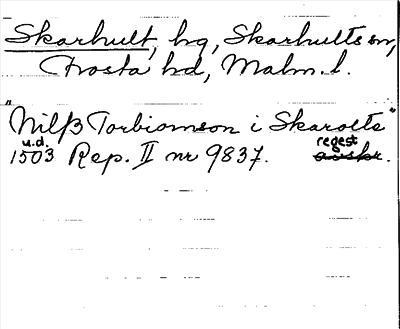 Skarhult, hg, Skarhults sn,
Frosta hd, Malm. l.
"Nilß Torbiomson i Skarolts"
u.d. regest
1503 Rep. II nr 9837. avskr.